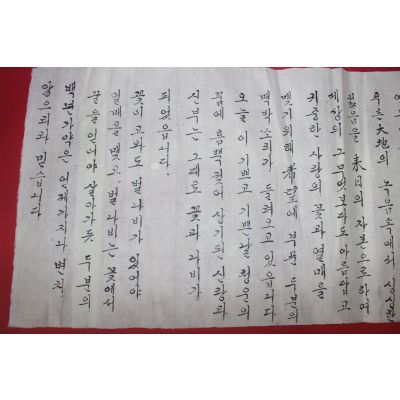 푸른 大地의 녹음속에서 싱싱한
젊음을 春日의 자본으로하여
세상의 그무엇보다도 아름답고
귀중한 사랑의 꽃과 열매를
맺기위해 希望에 부푼 두분의
맥박소리가 들려오고 있읍니다
오늘이 기쁘고 기쁜날 청운의
꿈에 흠뻑젖어 상기된 신랑과
신부는 그대로 꽃과 나비가
되었읍니다.
꽃이고와도 벌나비가 있어야
열매를 맺고 벌나비는 꽃에서
꿀을 얻어야 살아가듯 두분의
백년가약은 언제까지나 변치
않으리라 믿습니다